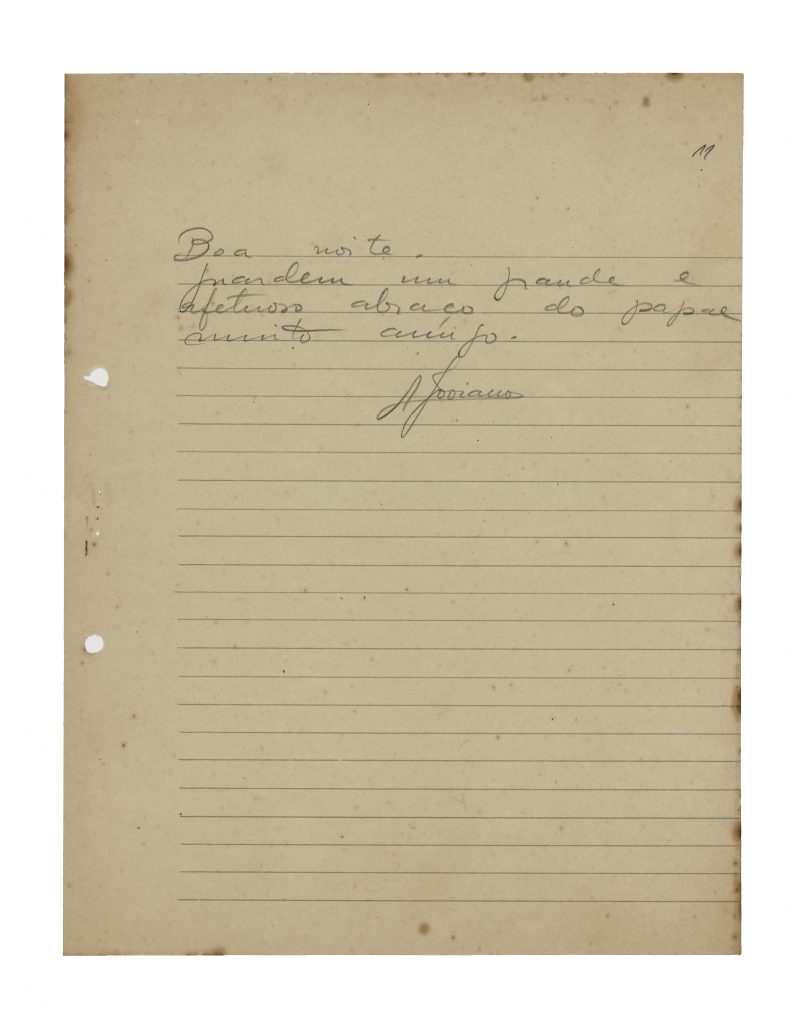 11
Boa noite.
guardem um grande e
afetuoso abraço do papae
muito amigo.
A Joviano